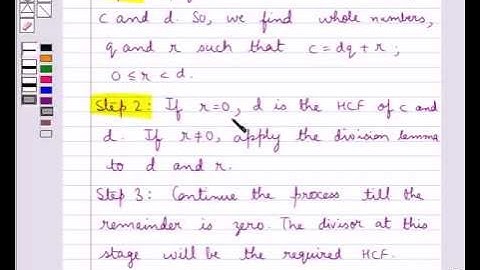 c and d. So, we find whole numbers,
q and r such that c = dq + r ;
0 ≤ r < d.
Step 2: If r=0, d is the HCF of c and
d. If r≠0, apply the division lemma
to d and r.
Step 3: Continue the process till the
remainder is zero. The divisor at this
stage will be the required HCF.